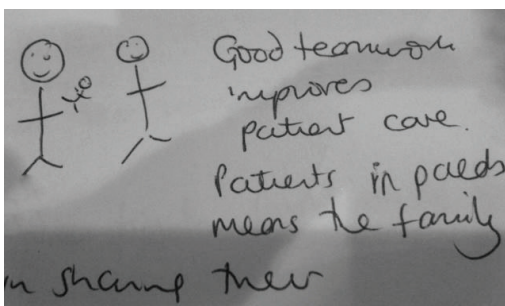 Good teamwork
improves
patient care.
Patients in paeds
means the family
in sharing their